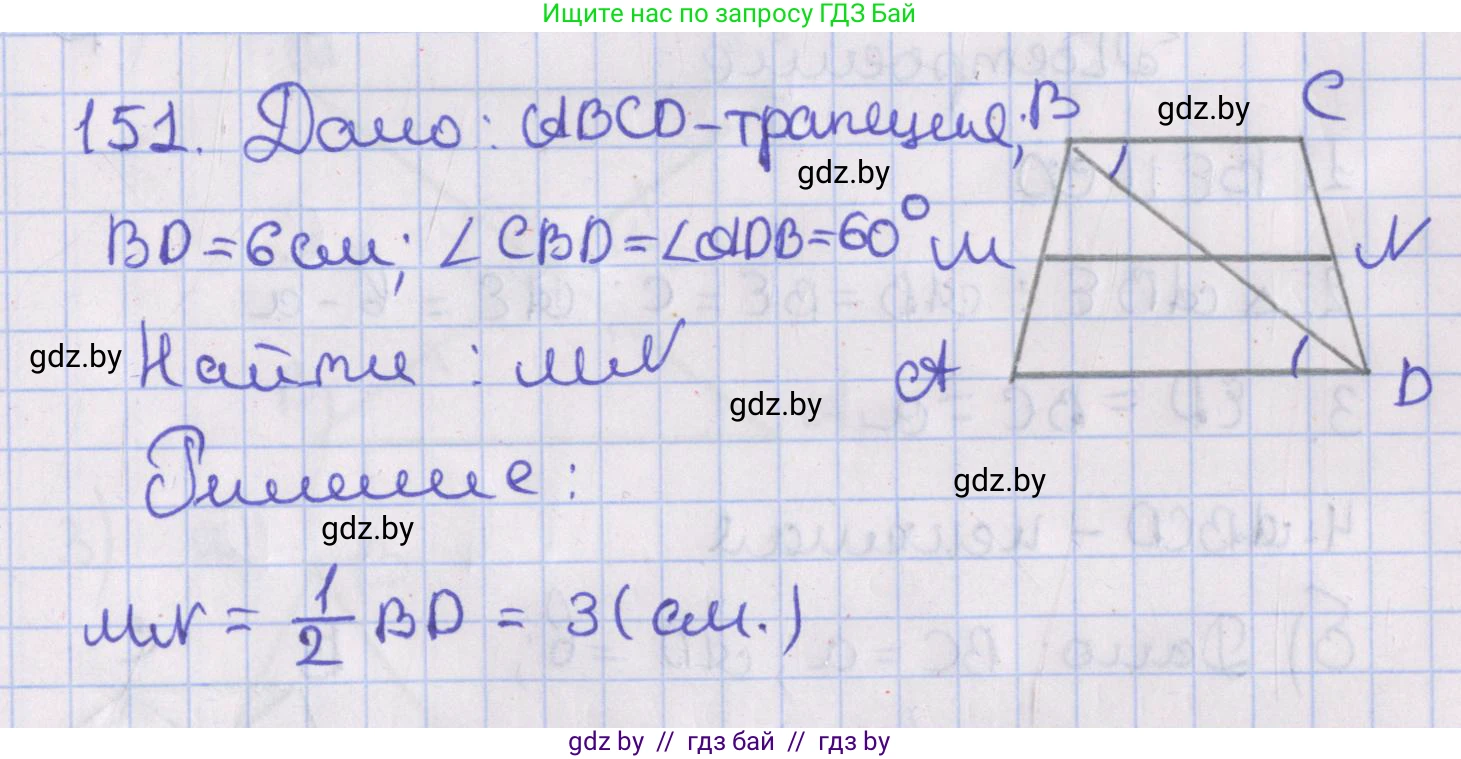 Ищите нас по запросу ГДЗ Бай
151. Дано: ABCD-трапеция;
BD=6см; ∠CBD=∠ADB=60°
Найти : MN
Решение:
MN = 1/2 BD = 3(см.)
B
C
M
N
A
D
gdz.by
gdz.by
gdz.by
gdz.by
gdz.by
gdz.by
gdz by // гдз бай // гдз by